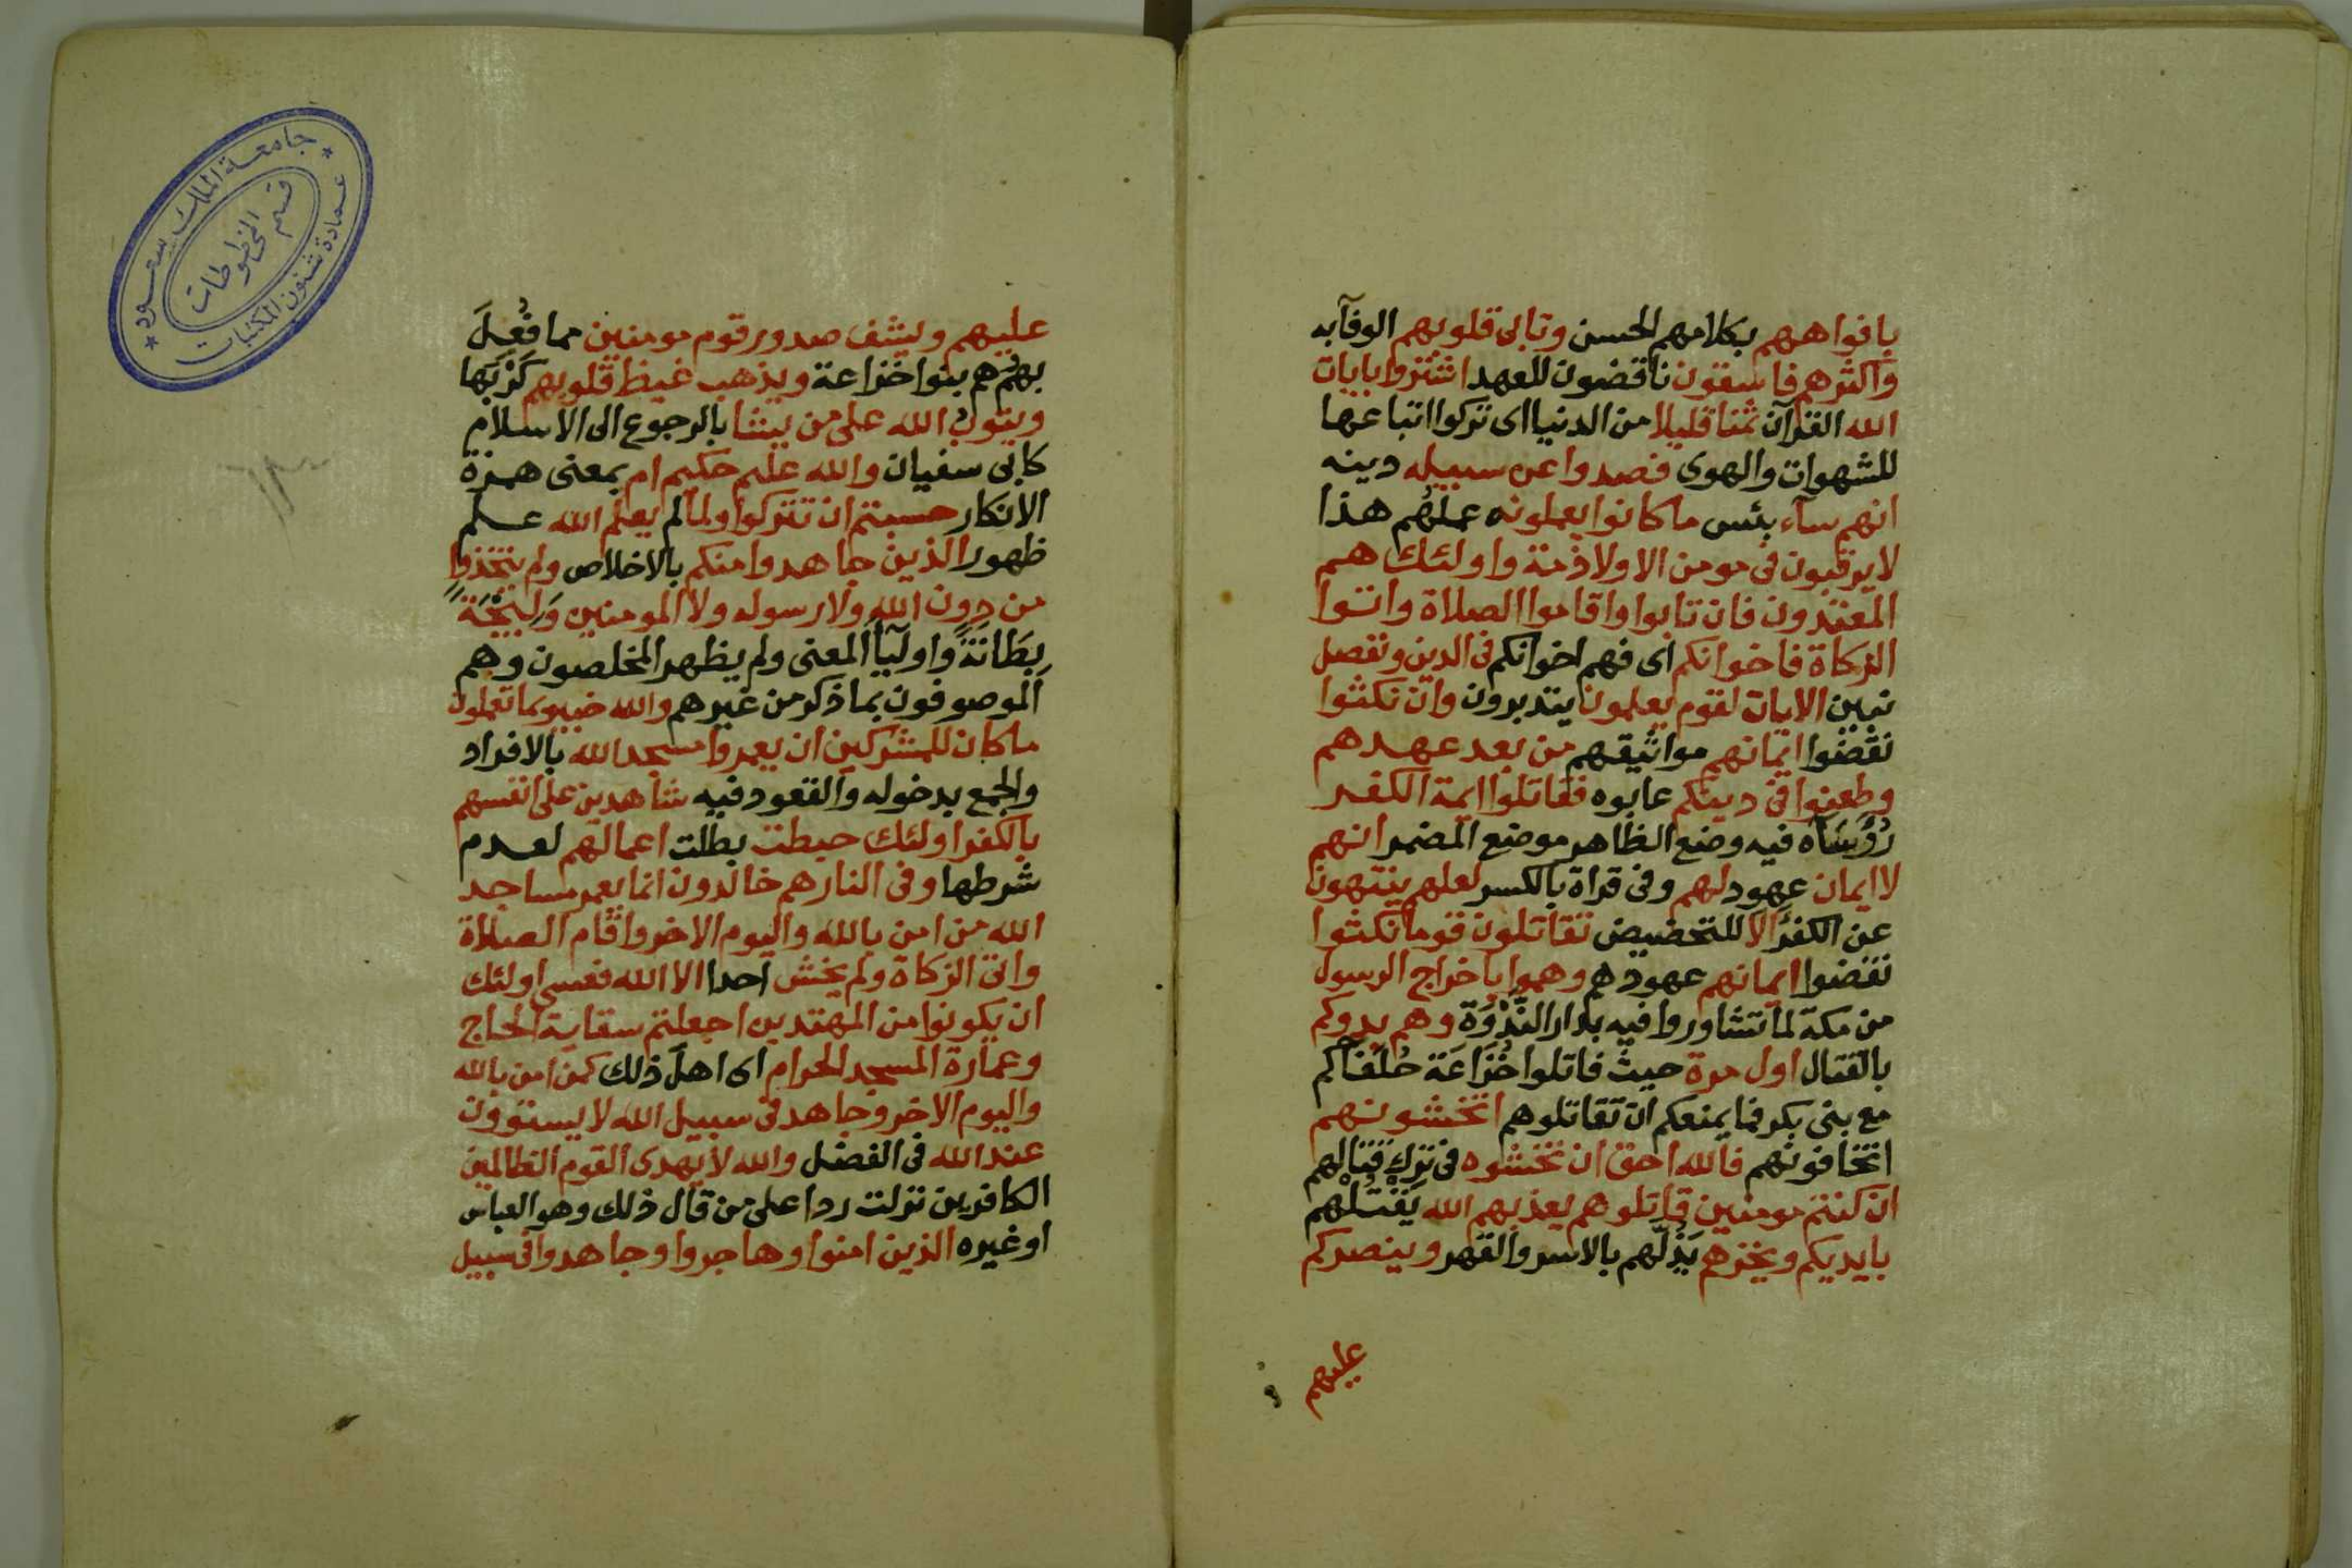 بافواههم بكلامهم الحسن وتابى قلوبهم الوفآبه
واكثرهم فاسقون ناقضون للعهد اشتروا بايات
الله القرآن ثمنا قليلا من الدنيا اى تركوا اتباعها
للشهوات والهوى فصدوا عن سبيله دينه
انهم سآء بئس ما كانوا يعملونه عملهُم هذا
لا يرقبون فى مومن الا ولا ذمة واولئك هم
المعتدون فان تابوا واقاموا الصلاة واتوا
الزكاة فاخوانكم اى فهم اخوانكم فى الدين ونفصل
نبين الايات لقوم يعلمون يتدبرون وان نكثوا
نقضوا ايمانهم مواثيقهم من بعد عهدهم
وطعنوا فى دينكم عابوه فقاتلوا ايمة الكفر
رُؤَسَآه فيه وضع الظاهر موضع المضمر انهم
لا ايمان عهود لهم وفى قراة بالكسر لعلهم ينتهون
عن الكفر الا للتحضيض تقاتلون قوما نكثوا
نقضوا ايمانهم عهودهم وهموا باخراج الرسول
من مكة لما تشاوروا فيه بدار النَّدْوَة وهم بدوكم
بالقتال اول مرة حيث قاتلوا خُزَاعَة حُلَفآكم
مع بنى بكر فما يمنعكم ان تقاتلوهم اتخشونهم
اتخافونهم فالله احق ان تخشوه فى تركِ قتالهم
ان كنتم مومنين قاتلوهم يعذبهم الله يَقْتُلْهم
بايديكم ويخزهم يَذِلّهم بالاسر والقهر وينصركم
عليهم
جامعة الملك سعود
عمادة شئون المكتبات
قسم المخطوطات
عليهم ويشف صدور قوم مومنين مما فُعِلَ
بهِمْ هم بنوا خزاعة ويذهب غيظ قلوبهم كَرْبَها
ويتوبُ الله على من يشا بالرجوع الى الاسلام
كابى سفيان والله عليم حكيم ام بمعنى همزة
الانكار حسبتم ان تتركوا ولما لم يعلم الله علم
ظهور الذين جاهدوا منكم بالاخلاص ولم يتخذوا
من دون الله ولا رسوله ولا المومنين وَلِيجَةً
بِطَانَةً واوليآ المعنى ولم يظهر المخلصون وهم
الموصوفون بما ذكر من غيرهم والله خبير بما تعملون
ما كان للمشركين ان يعمروا مسجد الله بالافراد
والجمع بدخوله والقعود فيه شاهدين على انفسهم
بالكفر اولئك حبطت بطلت اعمالهم لعدم
شرطها وفى النار هم خالدون انما يعمر مساجد
الله من امن بالله واليوم الاخر واقام الصلاة
واتى الزكاة ولم يخش احدا الا الله فعسى اولئك
ان يكونوا من المهتدين اجعلتم سقاية الحاج
وعمارة المسجد الحرام اى اهل ذلك كمن امن بالله
واليوم الاخر وجاهد فى سبيل الله لا يستوون
عند الله فى الفضل والله لا يهدى القوم الظالمين
الكافرين نزلت ردا على من قال ذلك وهو العباس
او غيره الذين امنوا وهاجروا وجاهدوا فى سبيل